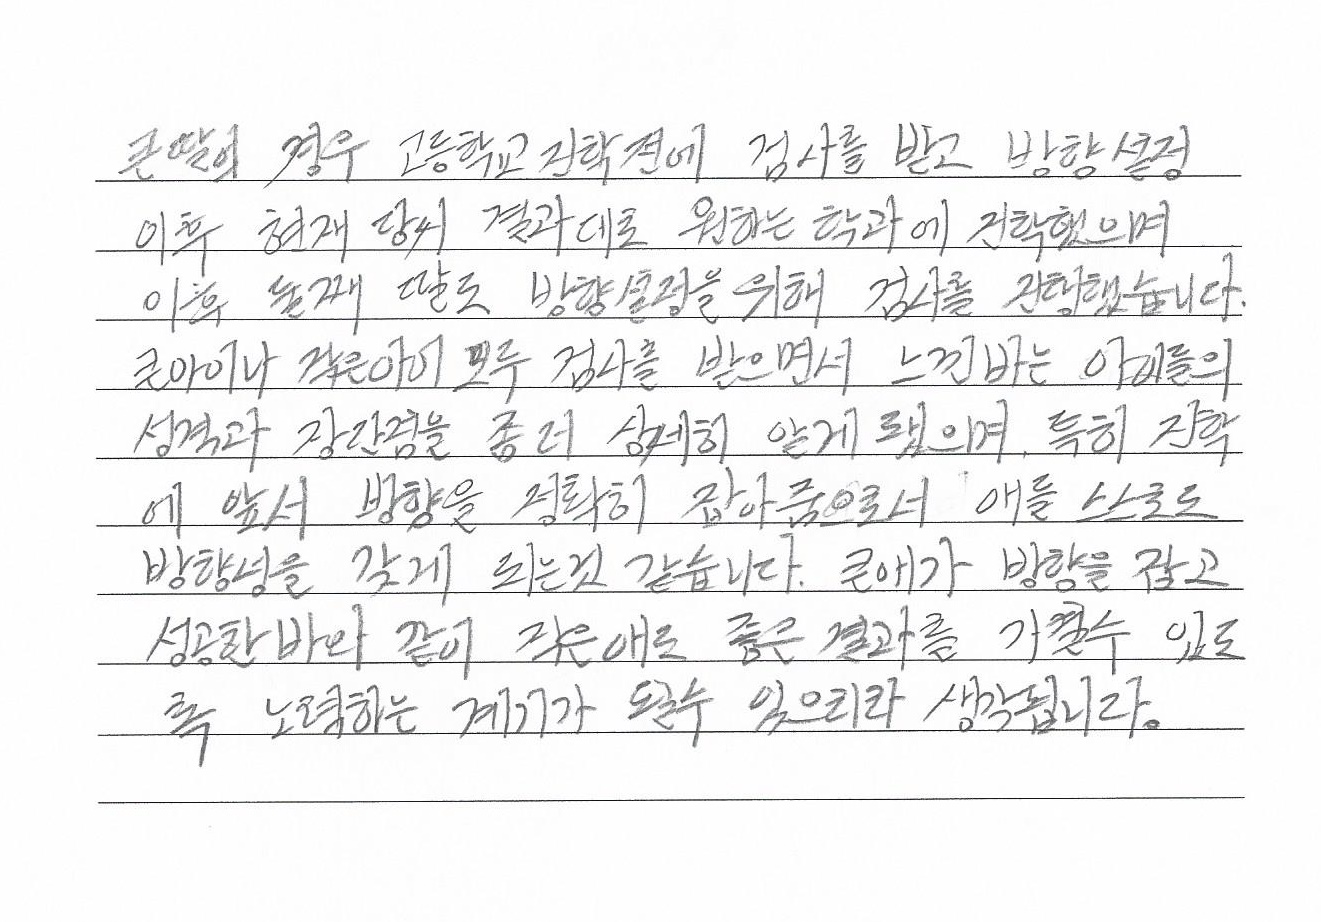 큰딸의 경우 고등학교 진학전에 검사를 받고 방향설정
이후 현재 당시 결과대로 원하는 학과에 진학했으며
이후 둘째 딸도 방향설정을 위해 검사를 진행했습니다.
큰아이나 작은아이 모두 검사를 받으면서 느낀바는 아이들의
성격과 장단점을 좀 더 상세히 알게 됐으며, 특히 진학
에 앞서 방향을 정확히 잡아줌으로서 애들 스스로도
방향성을 갖게 되는것 같습니다. 큰애가 방향을 잡고
성공한바와 같이 작은애도 좋은 결과를 가질수 있도
록 노력하는 계기가 될수 있으리라 생각됩니다.